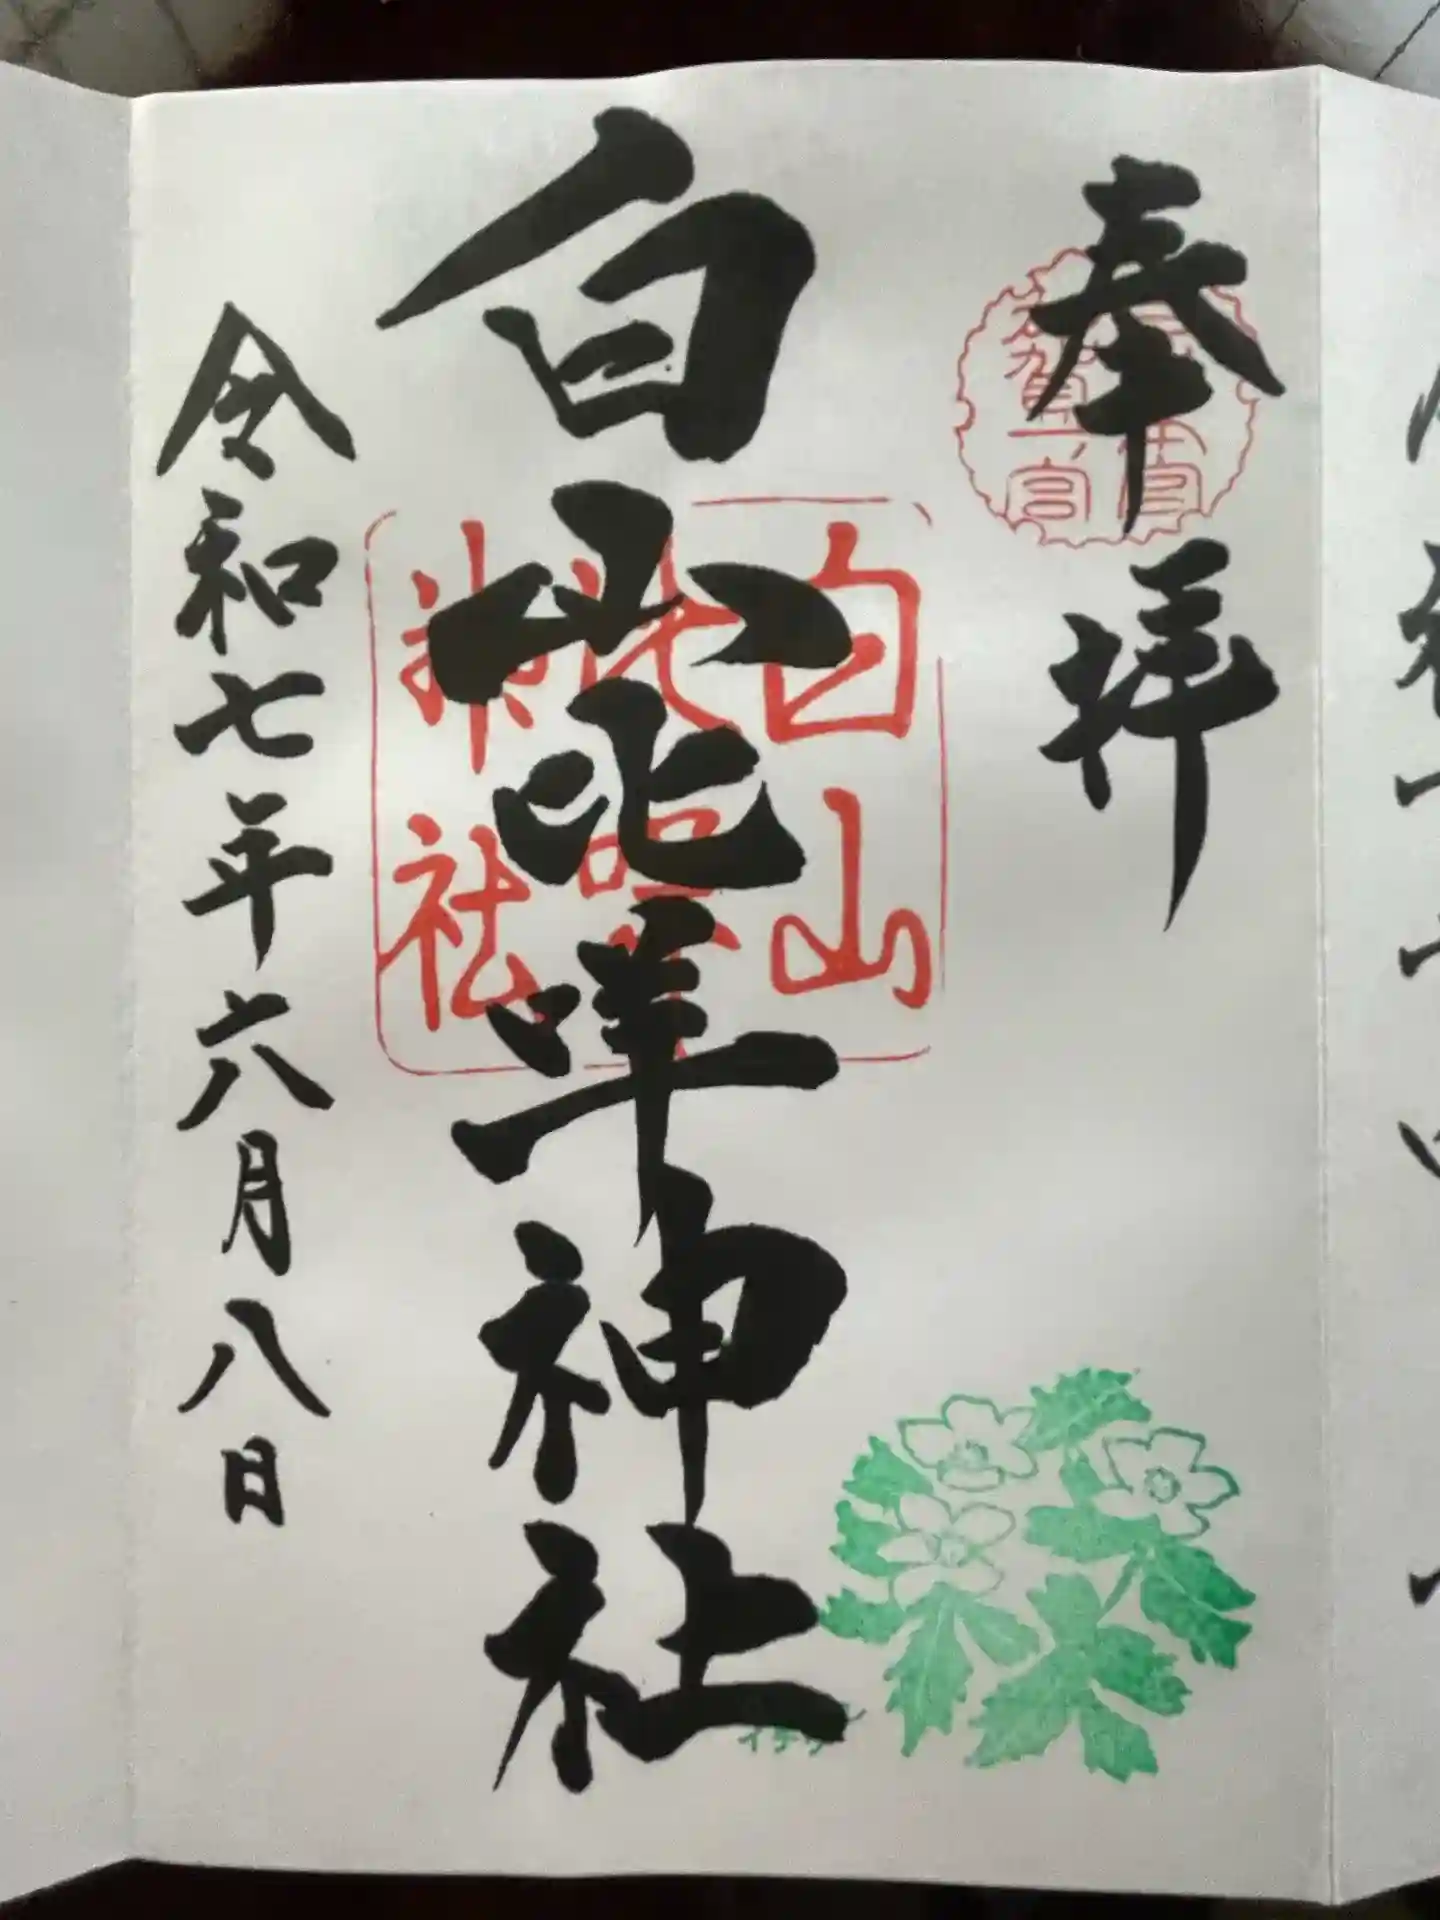 奉拝
加賀一宮
白山比咩神社
白山
比咩
神社
令和七年六月八日